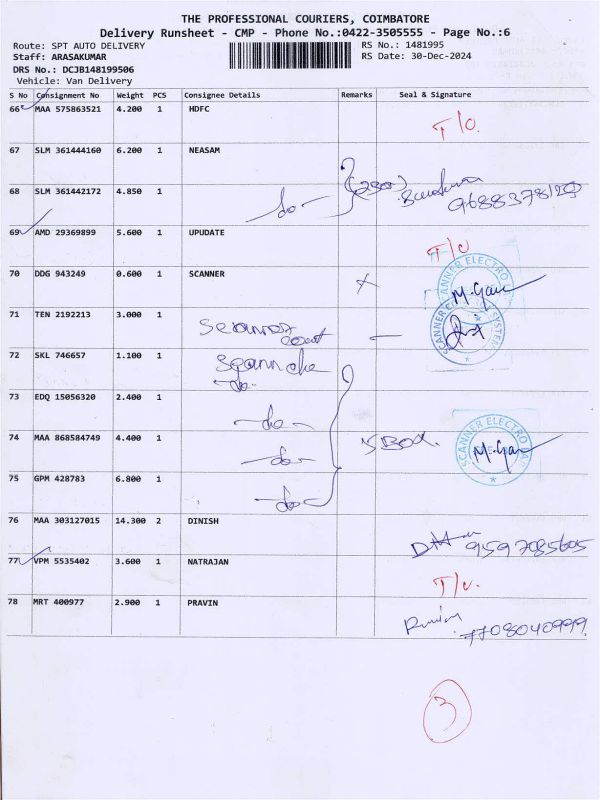 THE PROFESSIONAL COURIERS, COIMBATORE
Delivery Runsheet - CMP - Phone No.:0422-3505555 - Page No.:6
Route: SPT AUTO DELIVERY RS No.: 1481995
Staff: ARASAKUMAR RS Date: 30-Dec-2024
DRS No.: DCJB148199506
Vehicle: Van Delivery
S No Consignment No Weight PCS Consignee Details Remarks Seal & Signature
66 MAA 575863521 4.200 1 HDFC T/O.
67 SLM 361444160 6.200 1 NEASAM
68 SLM 361442172 4.850 1 -do-
69 AMD 29369899 5.600 1 UPUDATE T/O
70 DDG 943249 0.600 1 SCANNER M.Gan
71 TEN 2192213 3.000 1
72 SKL 746657 1.100 1 -do-
73 EDQ 15056320 2.400 1 -do-
74 MAA 868584749 4.400 1 -do- 5 BOX. M.Gan
75 GPM 428783 6.800 1 -do-
76 MAA 303127015 14.300 2 DINISH 9597085605
77 VPM 5535402 3.600 1 NATRAJAN T/O.
78 MRT 400977 2.900 1 PRAVIN 7708040999
3